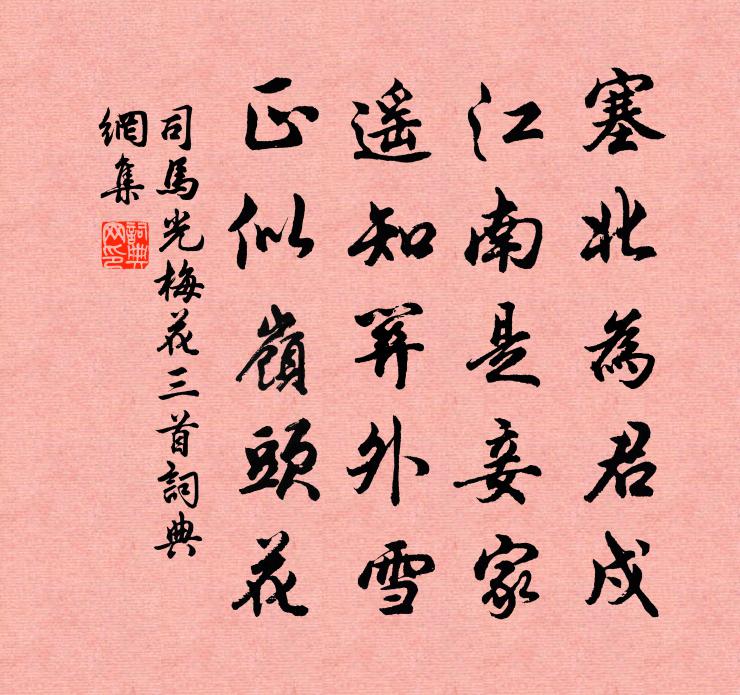 塞北為君戍
江南是妾家
遥知笄外雪
正似嶺頭花
司馬光梅花三首詞典
網集
詞典網印